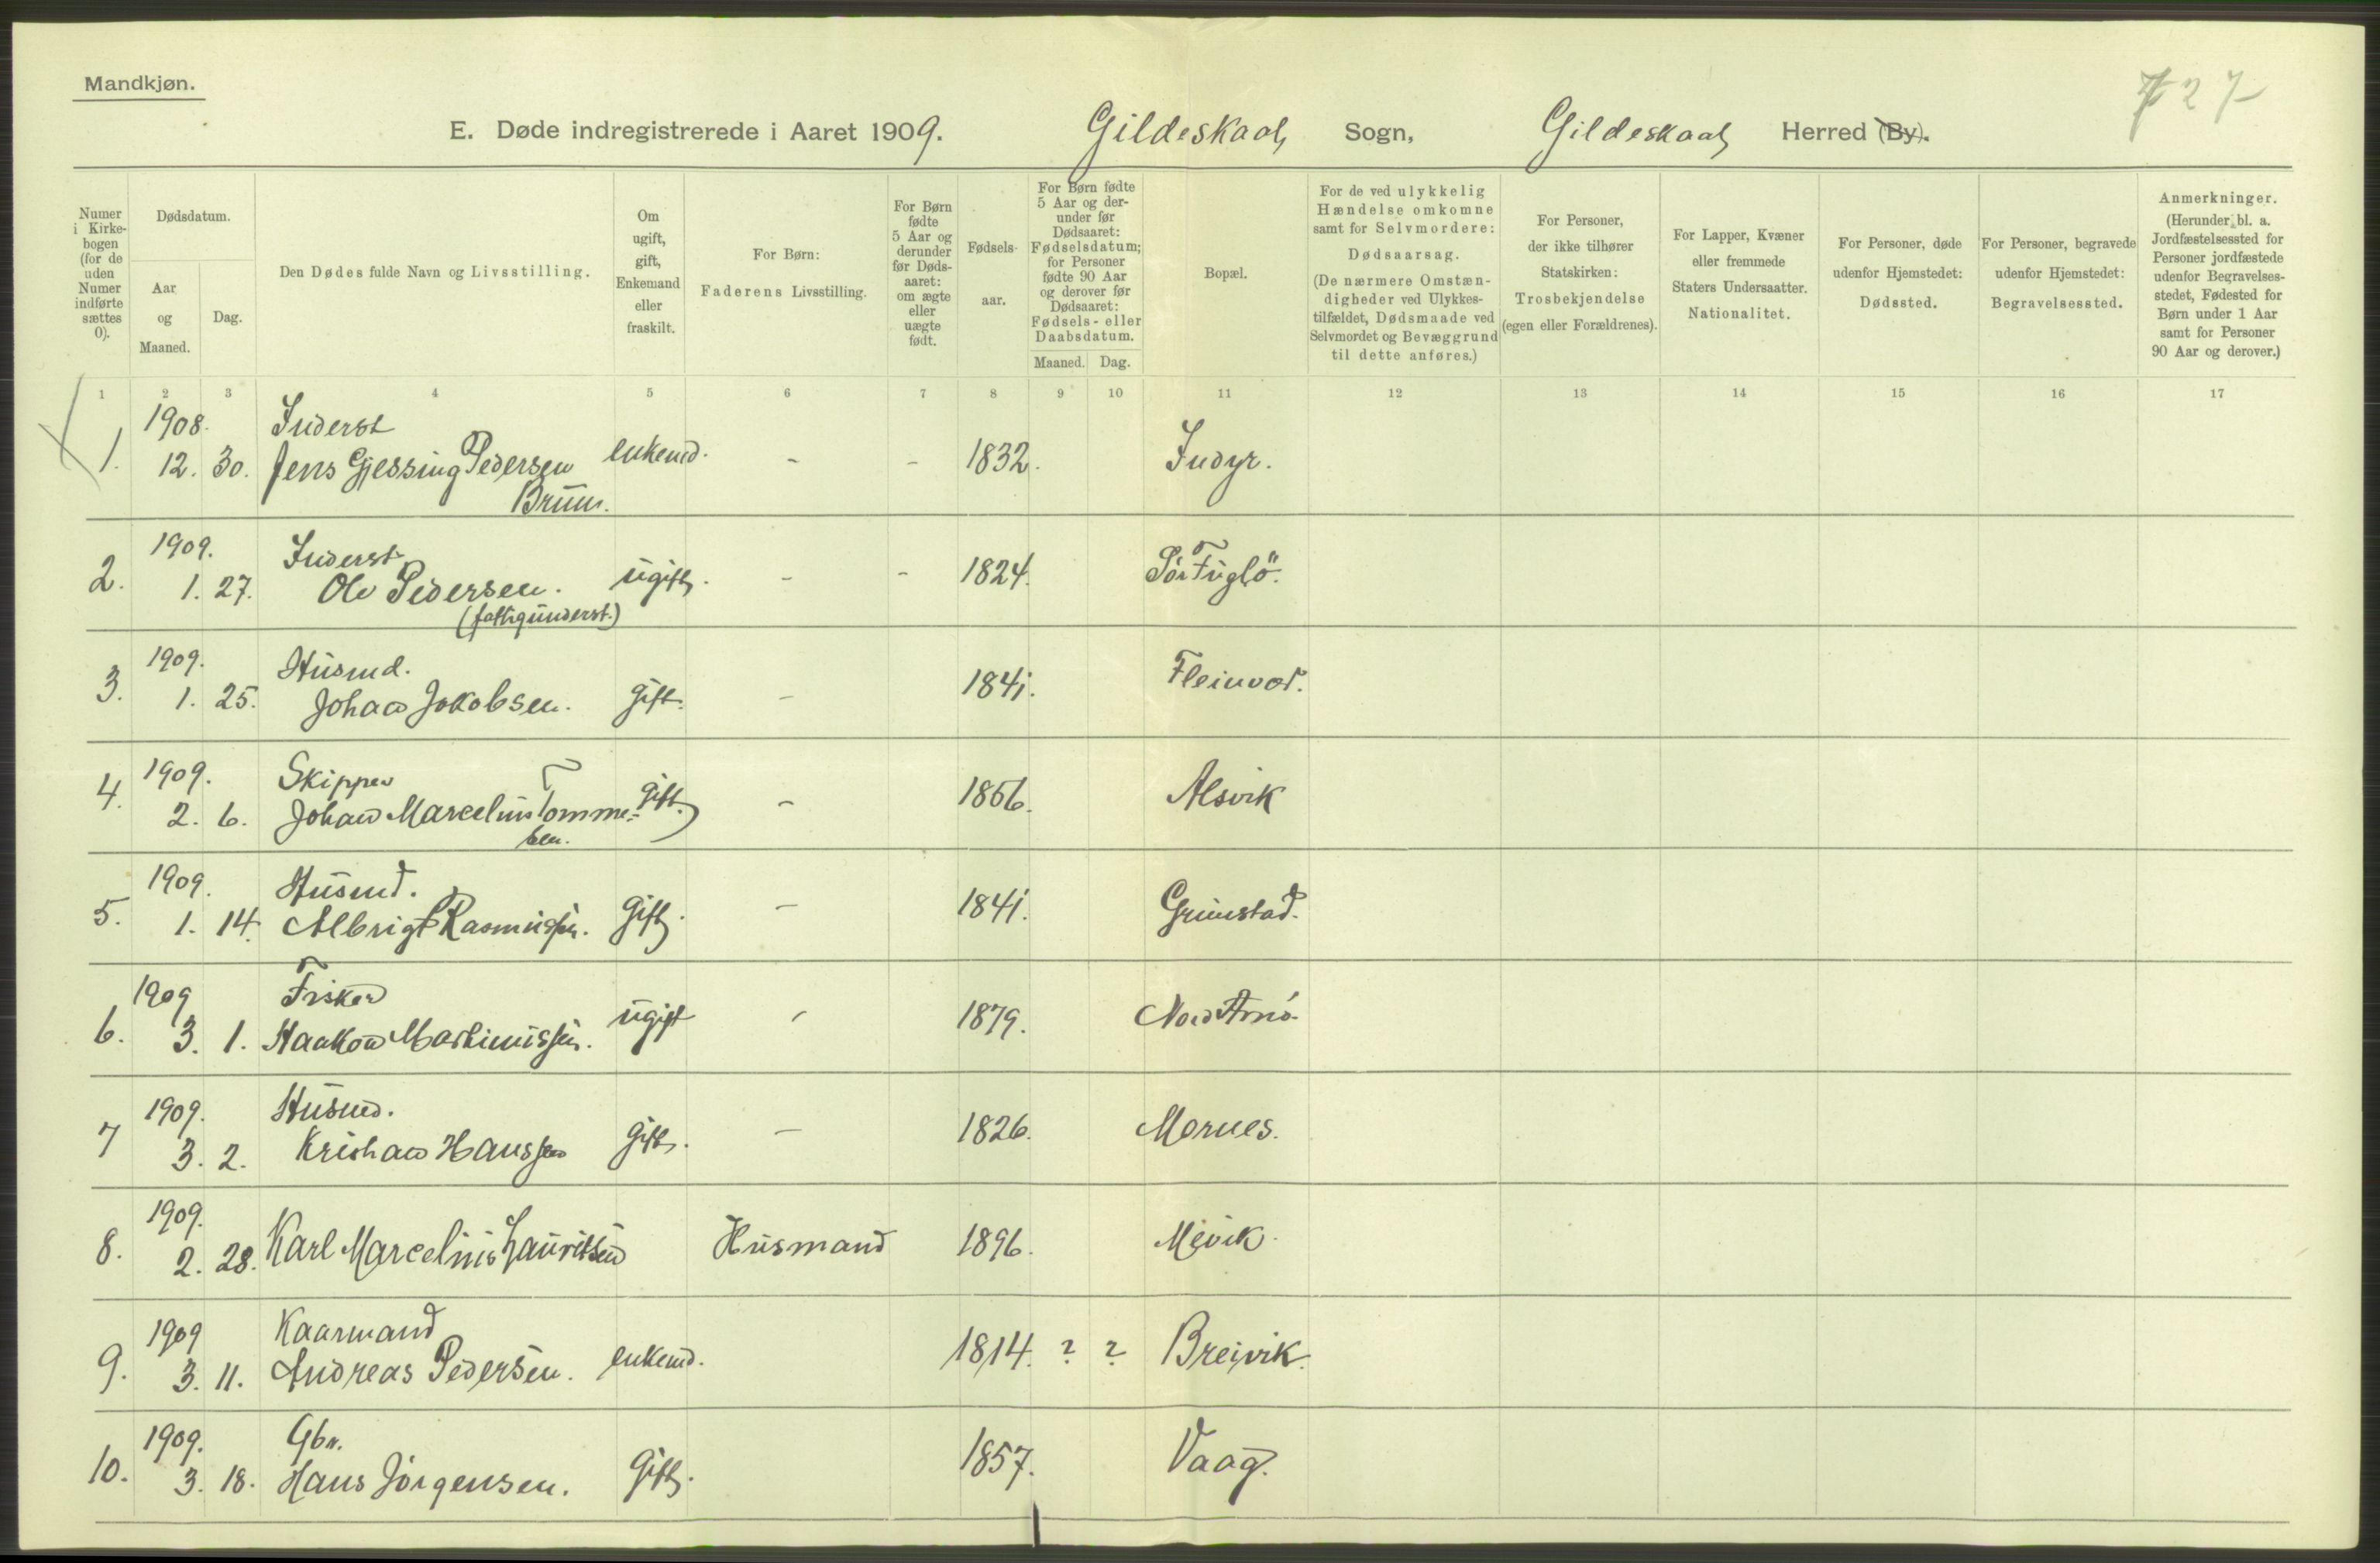 Mandkjøn.
727
E. Døde indregistrerede i Aaret 1909. Gildeskaal Sogn, Gildeskaal Herred (By).
Numer i Kirkebogen (for de uden Numer indførte sættes 0).
Dødsdatum.
Aar og Maaned.
Dag.
Den Dødes fulde Navn og Livsstilling.
Om ugift, gift, Enkemand eller fraskilt.
For Børn: Faderens Livsstilling.
For Børn fødte 5 Aar og derunder før Dødsaaret: om ægte eller uægte født.
Fødselsaar.
For Børn fødte 5 Aar og derunder før Dødsaaret: Fødselsdatum; for Personer fødte 90 Aar og derover før Dødsaaret: Fødsels- eller Daabsdatum.
Maaned. Dag.
Bopæl.
For de ved ulykkelig Hændelse omkomne samt for Selvmordere: Dødsaarsag. (De nærmere Omstændigheder ved Ulykkestilfældet, Dødsmaade ved Selvmordet og Bevæggrund til dette anføres.)
For Personer, der ikke tilhører Statskirken: Trosbekjendelse (egen eller Forældrenes).
For Lapper, Kvæner eller fremmede Staters Undersaatter. Nationalitet.
For Personer, døde udenfor Hjemstedet: Dødssted.
For Personer, begravede udenfor Hjemstedet: Begravelsessted.
Anmerkninger. (Herunder bl. a. Jordfæstelsessted for Personer jordfæstede udenfor Begravelsesstedet, Fødested for Børn under 1 Aar samt for Personer 90 Aar og derover.)
1 2 3 4 5 6 7 8 9 10 11 12 13 14 15 16 17
1908. Inderst
1. 12. 30. Jens Gjessing Pedersen enkemd. - - 1832. Indyr.
Bruun.
1909. Inderst
2. 1. 27. Ole Pedersen. ugift. - - 1824. Sör Fuglö.
(fattigunderst.)
1909. Husmd.
3. 1. 25. Johan Jakobsen. gift. - 1841. Fleinvær.
1909. Skipper
4. 2. 6. Johan Marcelius Tomme- gift. - 1866. Alsvik
sen.
1909. Husmd.
5. 1. 14. Albrigt Rasmussen. gift. - 1841. Grimstad.
1909 Fisker
6. 3. 1. Haakon Martinussen. ugift - 1879. Nord Arnö.
1909. Husmd.
7 3. 2. Kristian Hanssen gift. - 1826. Mornes.
1909.
8. 2. 28. Karl Marcelius Lauritsen Husmand 1896. Mevik.
1909 Kaarmand
9. 3. 11. Andreas Pedersen. enkemd. 1814. ? ? Breivik.
1909. Gbr.
10. 3. 18. Hans Jörgensen. Gift. 1857. Vaag.